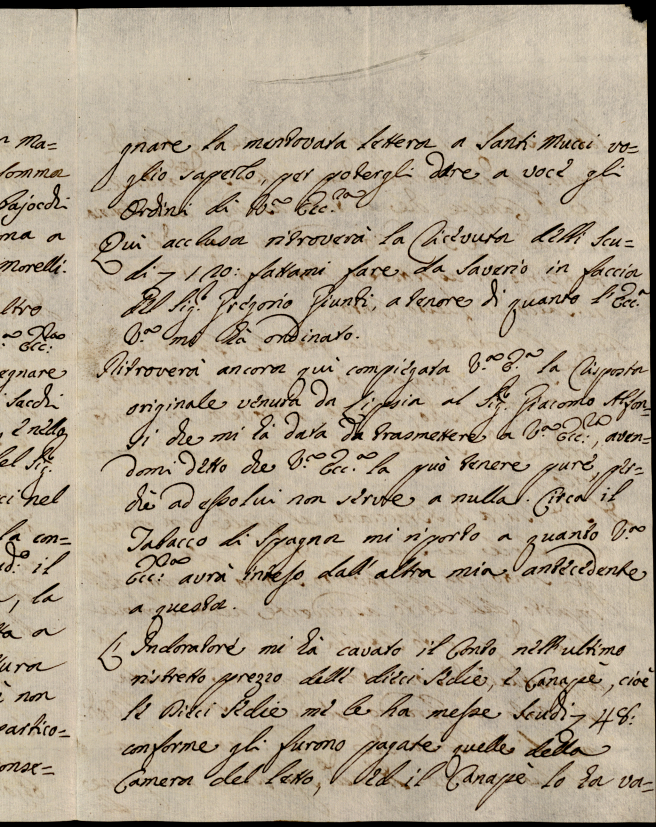 n ma=
somma
Bajocchi
ma a
Morelli.
ltro
Ecc:
egnare
i Sacchi
, e nello
del Sig.
cci nel
la con=
il
, la
ta a
tura
è non
partico=
onse=
gnare la mentovata lettera a Santi Mucci vo=
glio saperlo, per potergli dare a voce gli
Ordini di V.ª Ecc.ª
Qui acclusa ritroverà la Ricevuta delli Scu=
di 120: fattami fare da Saverio in faccia
del Sig. Gregorio Giunti, a tenore di quanto l'Ecc.ª
V.ª mi hà ordinato.
Ritroverà ancora qui compiegata V.ª E.ª la Risposta
originale venuta da Lipsia al Sig. Giacomo Alfon=
si che mi hà data da trasmettere a V.ª Ecc.ª, aven=
domi detto che V.ª Ecc.ª la può tenere pure, per=
chè ad essolui non serve a nulla. Circa il
Tabacco di Spagna mi riporto a quanto V.ª
Ecc.ª avrà inteso dall'altra mia antecedente
a questa.
L'Indoratore mi hà cavato il Conto nell'ultimo
ristretto prezzo delle dieci Sedie, e Canapè, cioè
le Dieci Sedie me le ha messe Scudi 48:
conforme gli furono pagate quelle della
Camera del letto, ed il Canapè lo hà va=